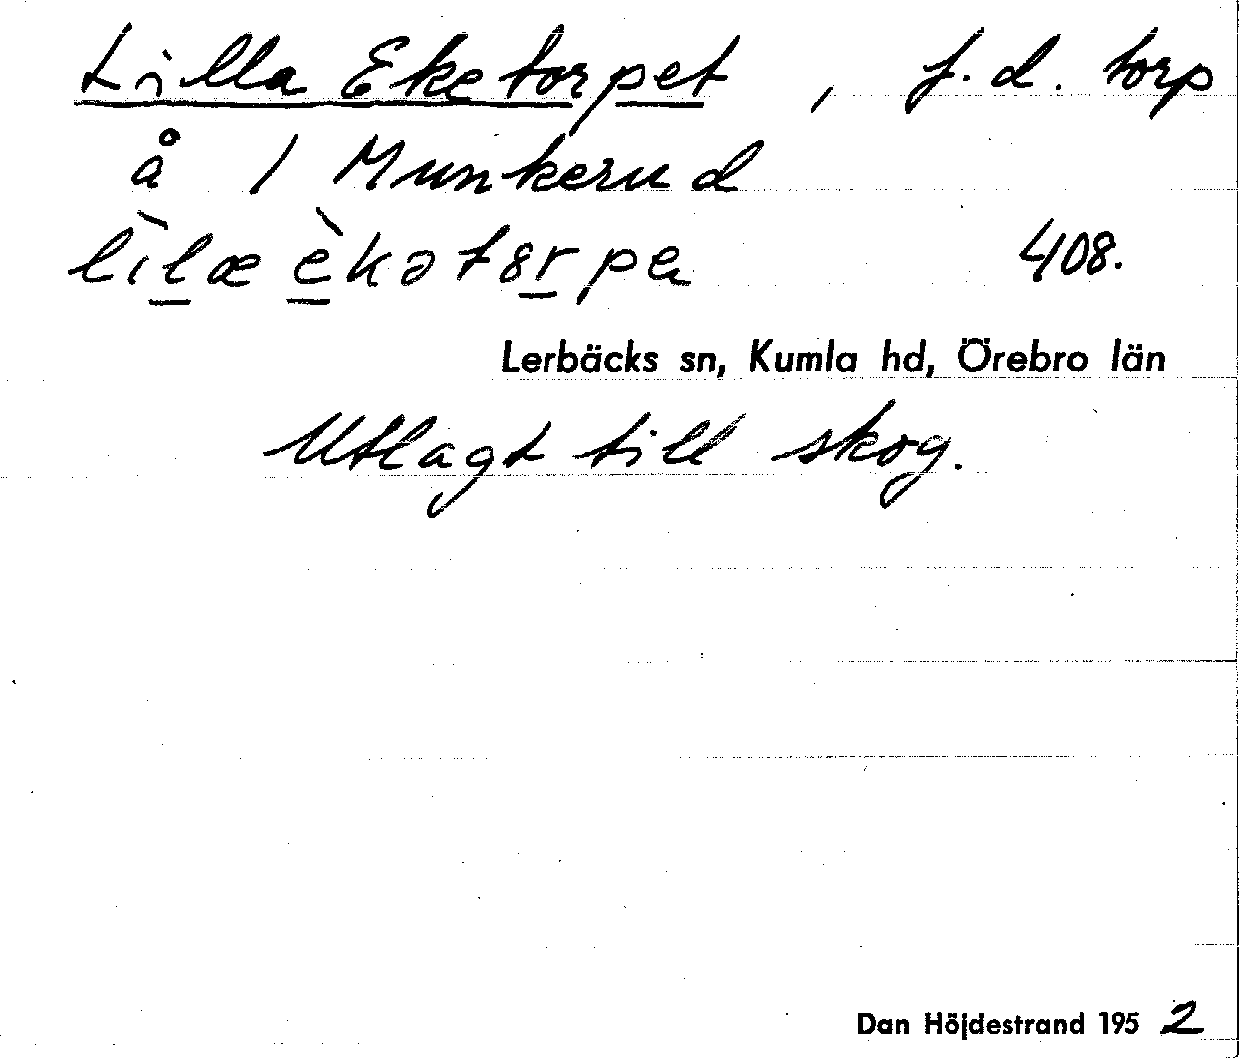 Lilla Eketorpet, f.d. torp
å 1 Munkerud
lìlæ èkətɞrpa 408.
Lerbäcks sn, Kumla hd, Örebro län
Utlagt till skog.
Dan Höjdestrand 1952